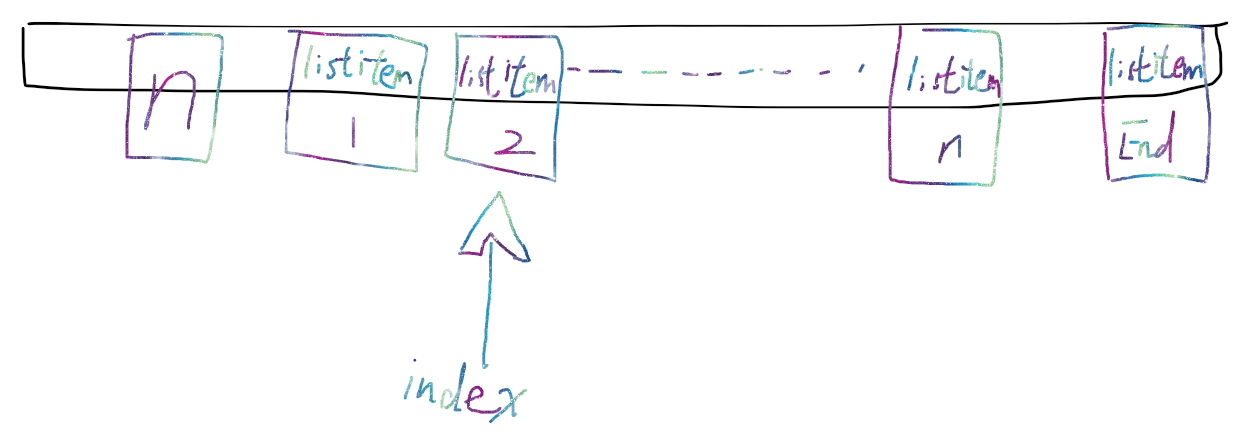 n
listitem
1
listitem
2
listitem
n
listitem
End
index